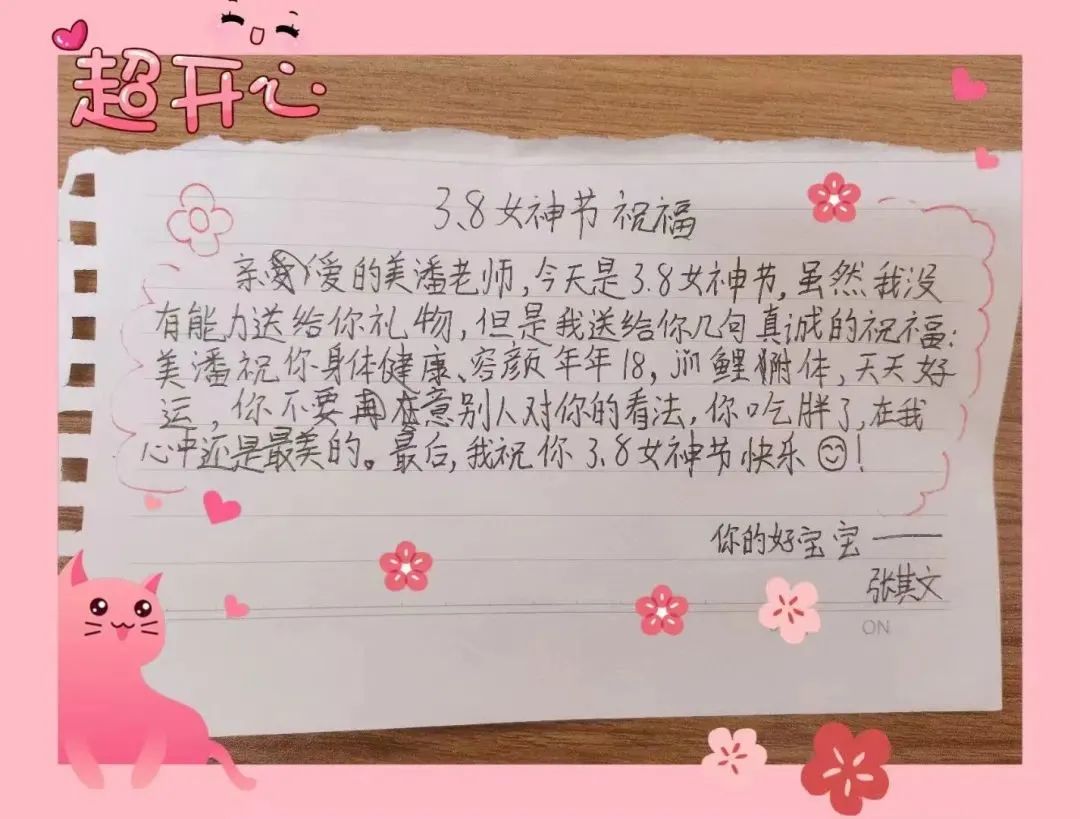 超开心
3.8女神节祝福
亲爱的美潘老师,今天是3.8女神节,虽然我没
有能力送给你礼物,但是我送给你几句真诚的祝福:
美潘祝你身体健康、容颜年年18,jin鲤附体,天天好
运,你不要再在意别人对你的看法,你吃胖了,在我
心中还是最美的。最后,我祝你3.8女神节快乐😊!
你的好宝宝——
张其文
ON